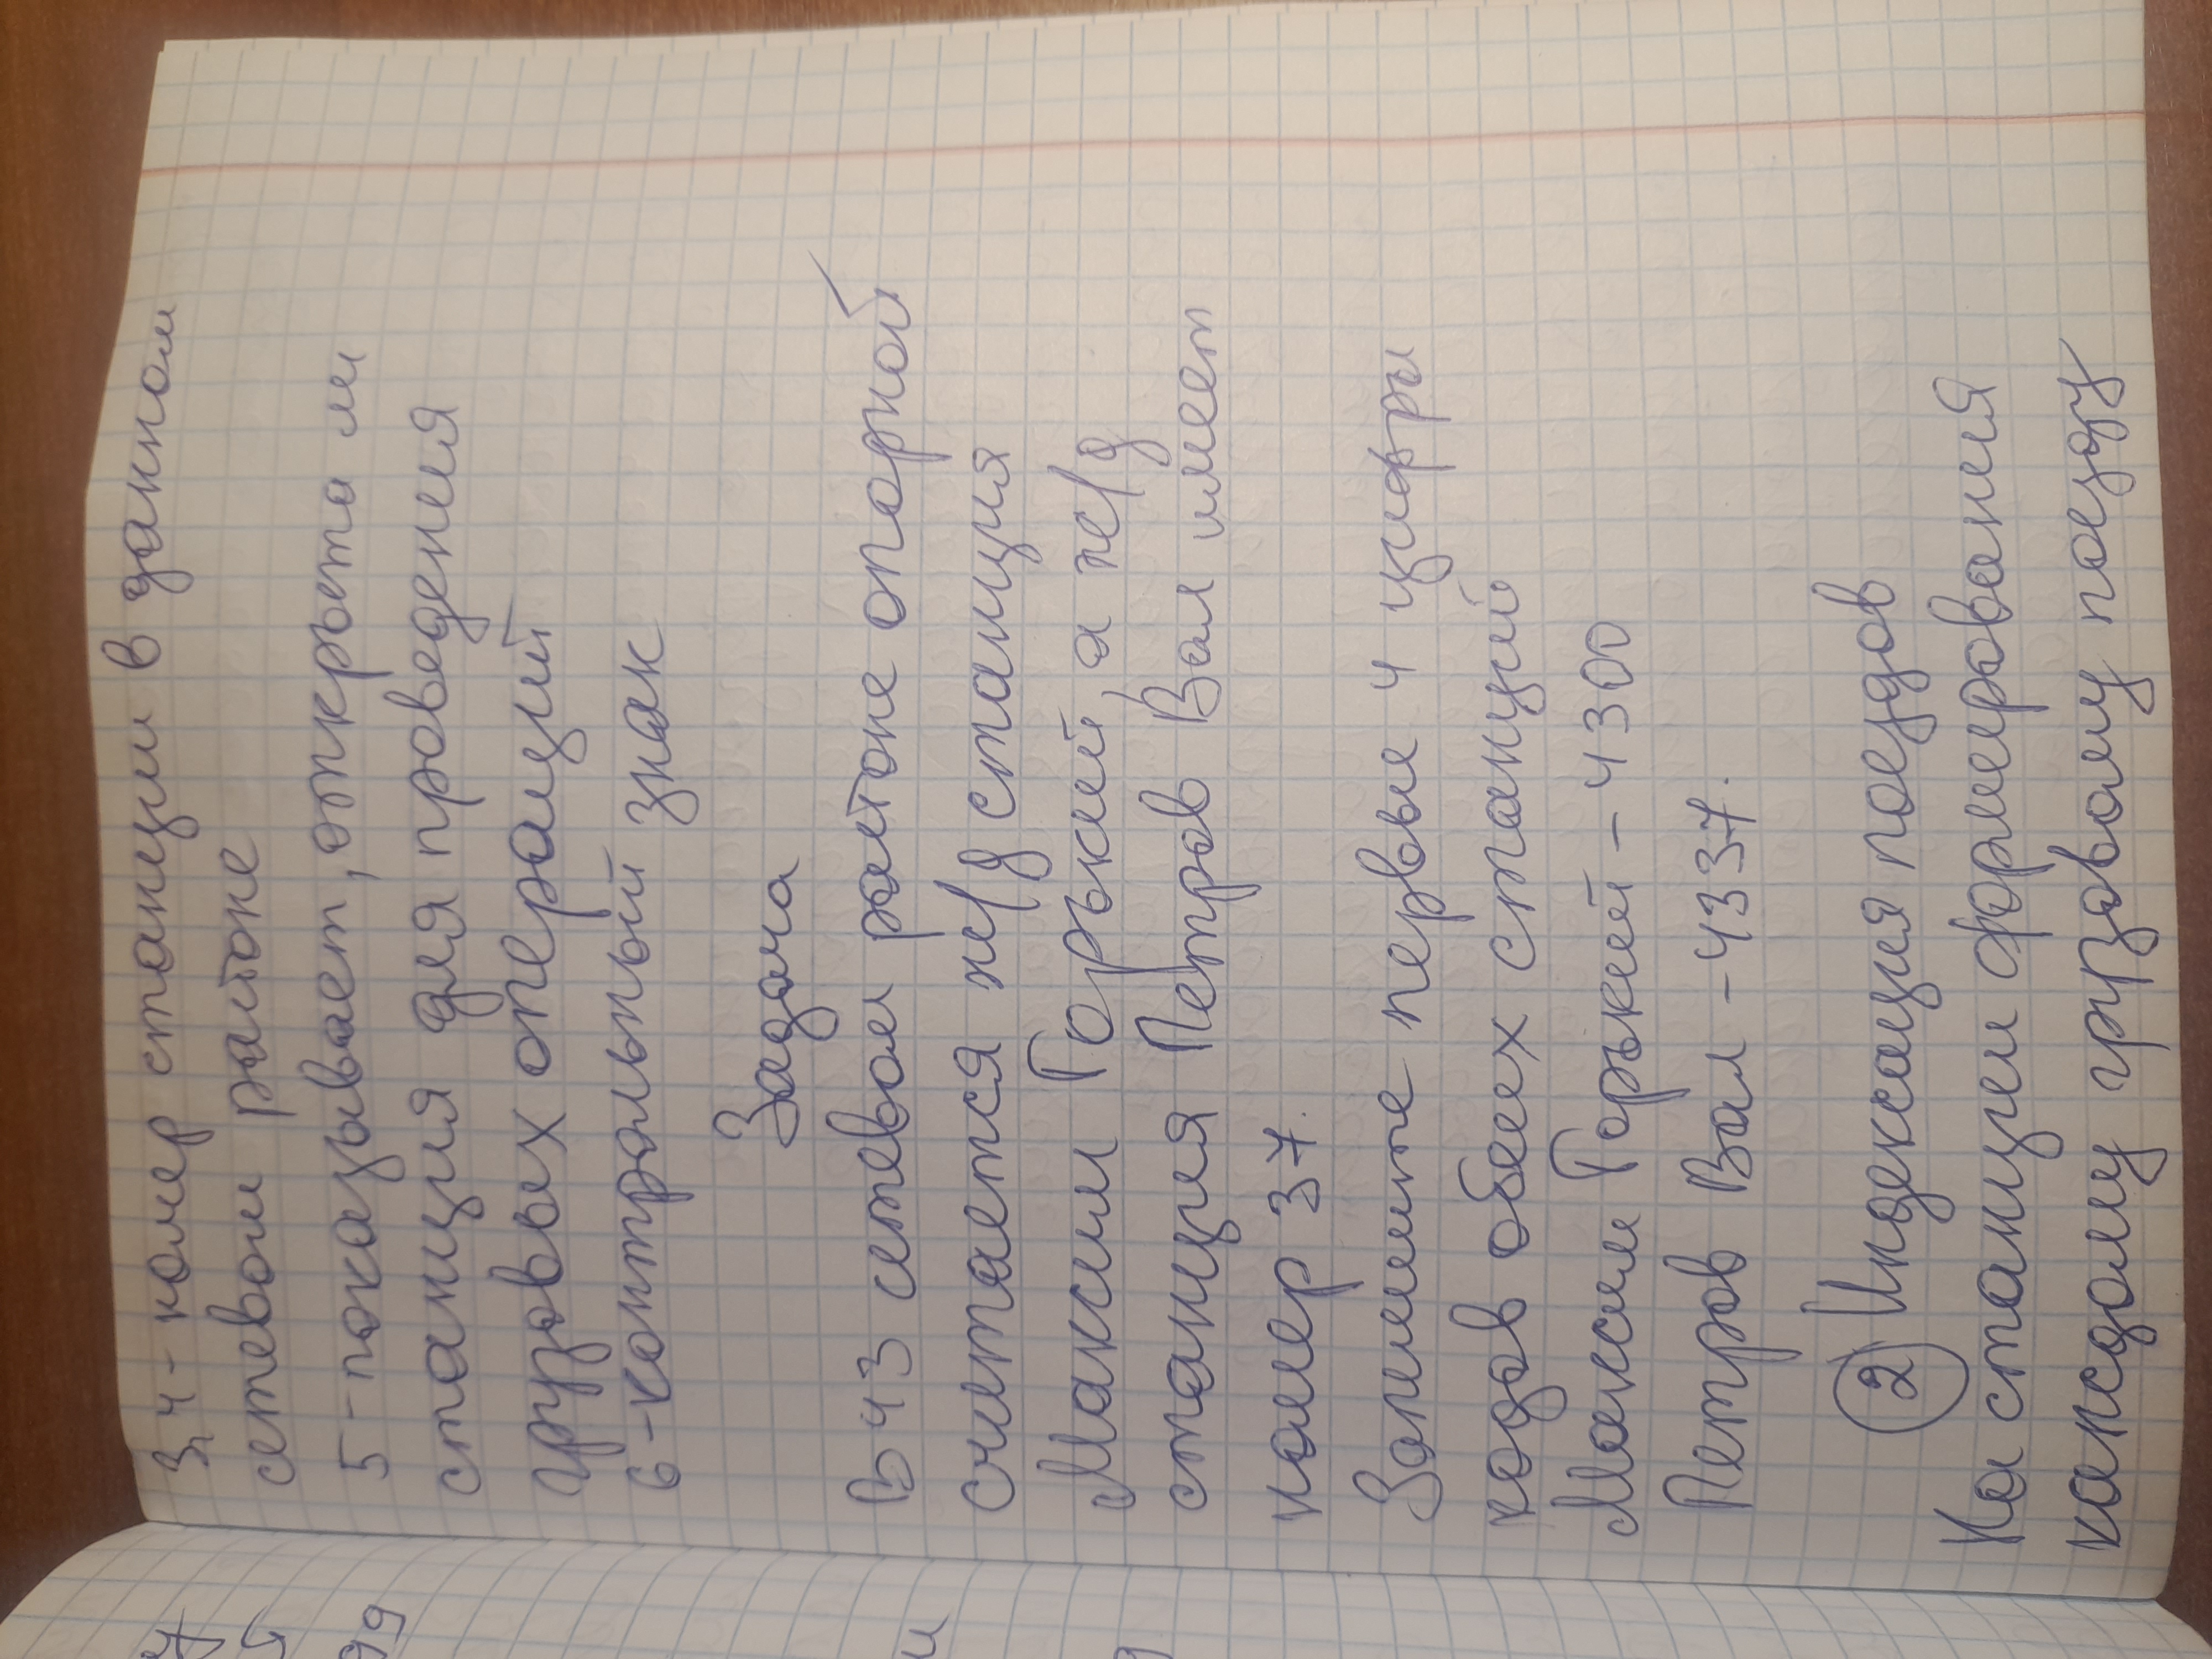 3,4 - номер станции в данном
сетевом районе
5 - показывает, открыта ли
станция для проведения
грузовых операций
6 - контрольный знак
Задача
В 43 сетевом районе опорной
считается ж/д станция
Максим Горький, а ж/д
станция Петров Вал имеет
номер 37.
Запишите первые 4 цифры
кодов обеих станций
Максим Горький - 4300
Петров Вал - 4337.
2 Индексация поездов
На станции формирования
каждому грузовому поезду
99